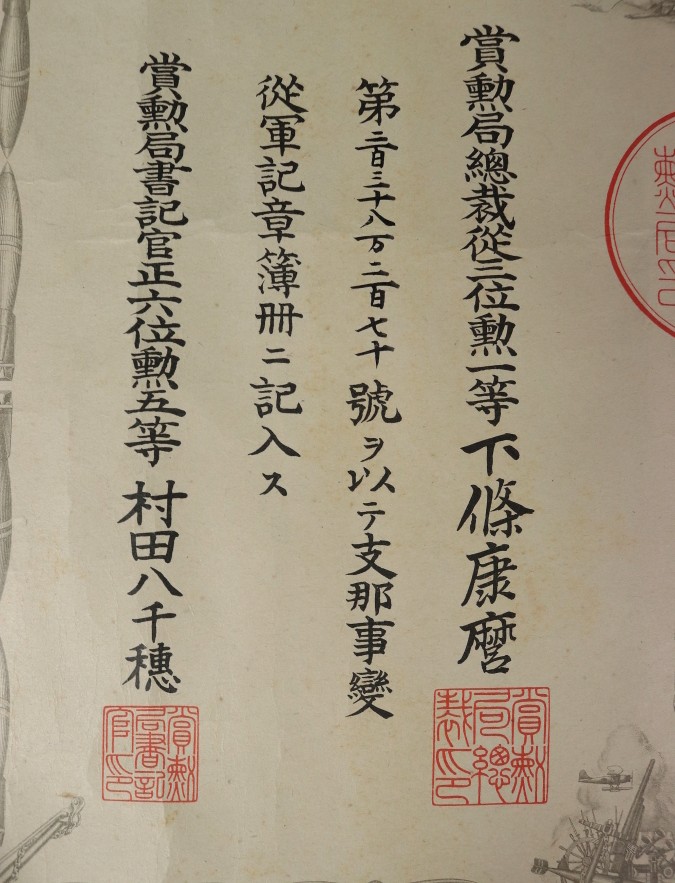 賞勲局總裁從三位勲一等下條康麿
第二百三十八万二百七十號ヲ以テ支那事變
從軍記章簿冊ニ記入ス
賞勲局書記官正六位勲五等村田八千穗
賞勲局總裁印
賞勲局書記官印